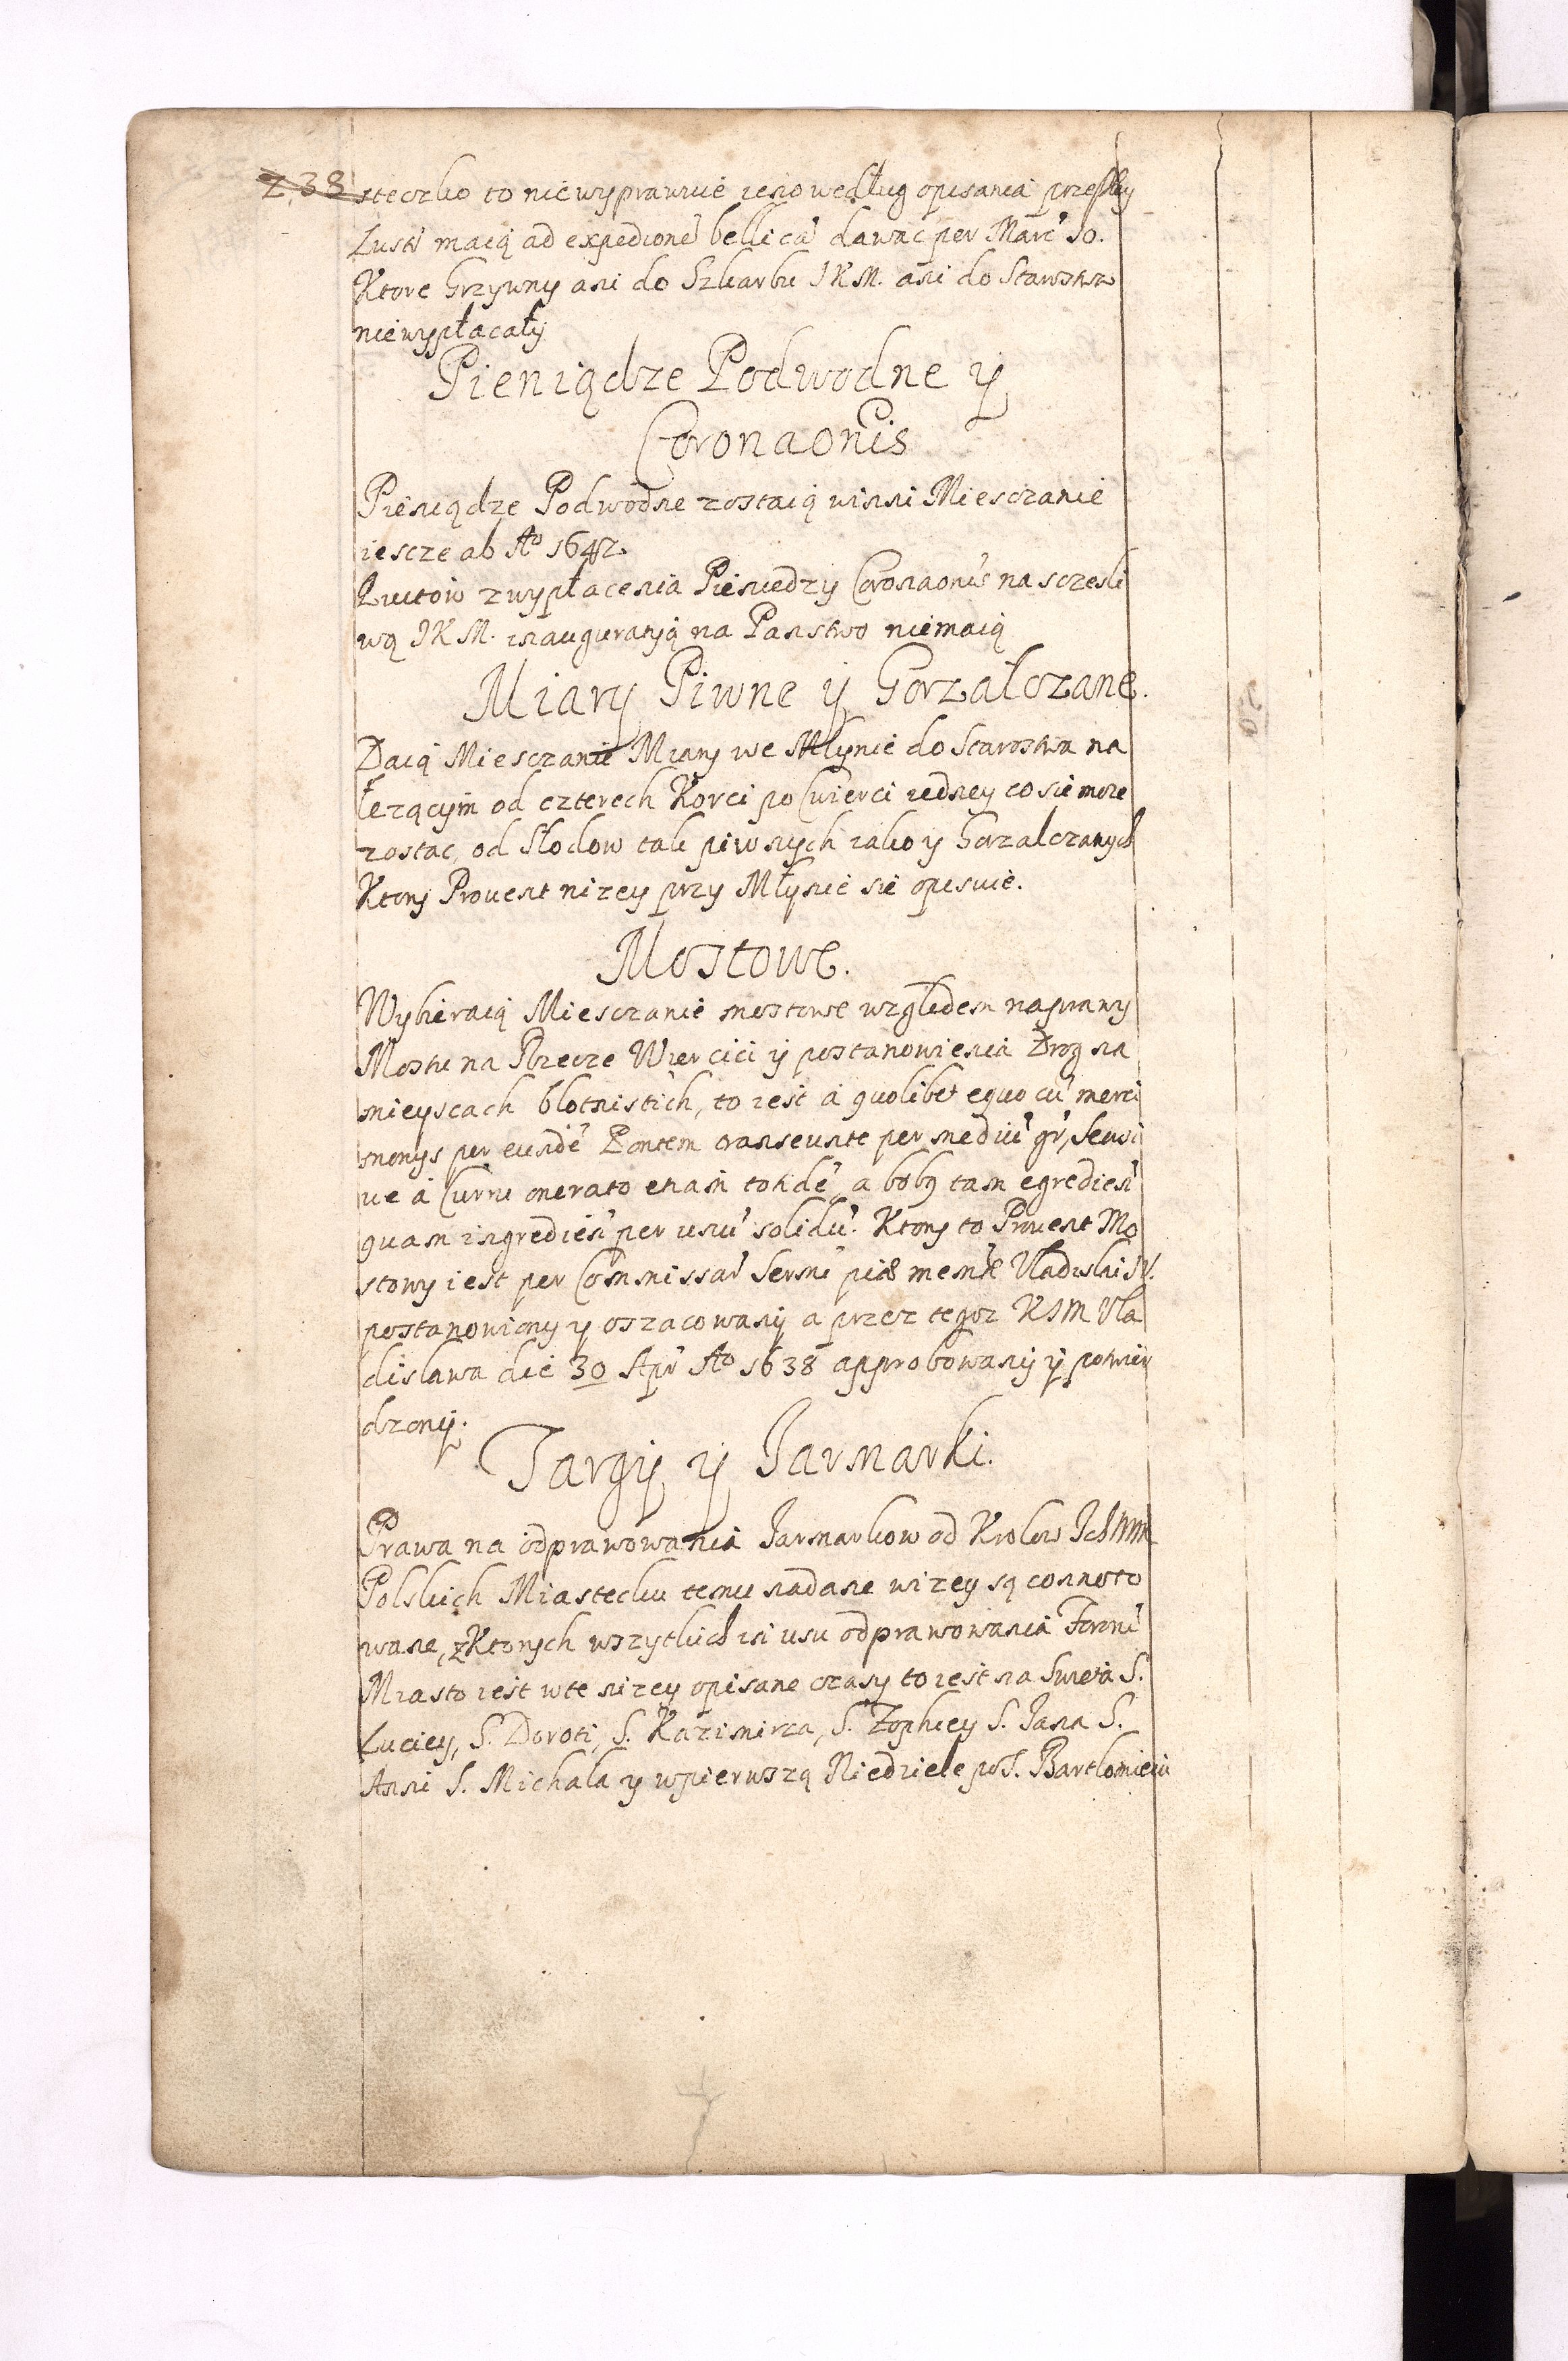 238
steczko to niewyprawuie ieno według opisania przeszłey
Lustr maią ad expedione bellica dawac per Marc 10.
Ktore Grzywny ani do Szkarbu JKM. ani do Starostwa
niewypłacały
Pieniądze Podwodne y
Coronaonis
Pieniądze Podwodne zostaią winni Miesczanie
iescze ab Aº 1642.
Kwitow z wypłacenia Pieniedzy Coronaonis na sczesli
wą JKM. inauguratią na Panstwo niemaią
Miary Piwne y Gorzalczane.
Daią Miesczanie Miary we Młynie do Starostwa na
lezącym od czterech Korci po Cwierci iedney co sie moze
zostac, od Słodow tak piwnych iako y Gorzalczanych
Ktory Provent nizey przy Młynie sie opisuie.
Mostowe.
Wybieraią Miesczanie mostowe względem naprawy
Mostu na Rzecze Wiercici y postanowienia Drog na
mieyscach blotnistich, to iest a quolibet equo cu merci
moniis per eunde Pontem transeunte per mediu gr, Sewi
ve a Curru onerato etiam totide, a bobg tam egredien
quam ingredien per unu solidu. Ktory to Provent Mo
stowy iest per Commissar Sermi piae memae Vladislai IV.
postanowiony y oszacowany a przez tegoz KJM Vla
dislawa die 30 Apr Aº 1638 approbowany y potwier
dzony.
Targy y Jarmarki.
Prawa na odprawowania Jarmarkow od Krolow IchMM
Polskich Miasteczku temu nadane wizey są connoto
wane, z Ktorych wszytkich in usu odprawowania Fororu
Miasto iest w te nizey opisane czasy to iest na Swieta S.
Luciey, S. Doroti, S. Kazimirza, S. Zophiey S. Jana S.
Anni S. Michala y w pierwszą Niedziele po S. Bartlomieiu